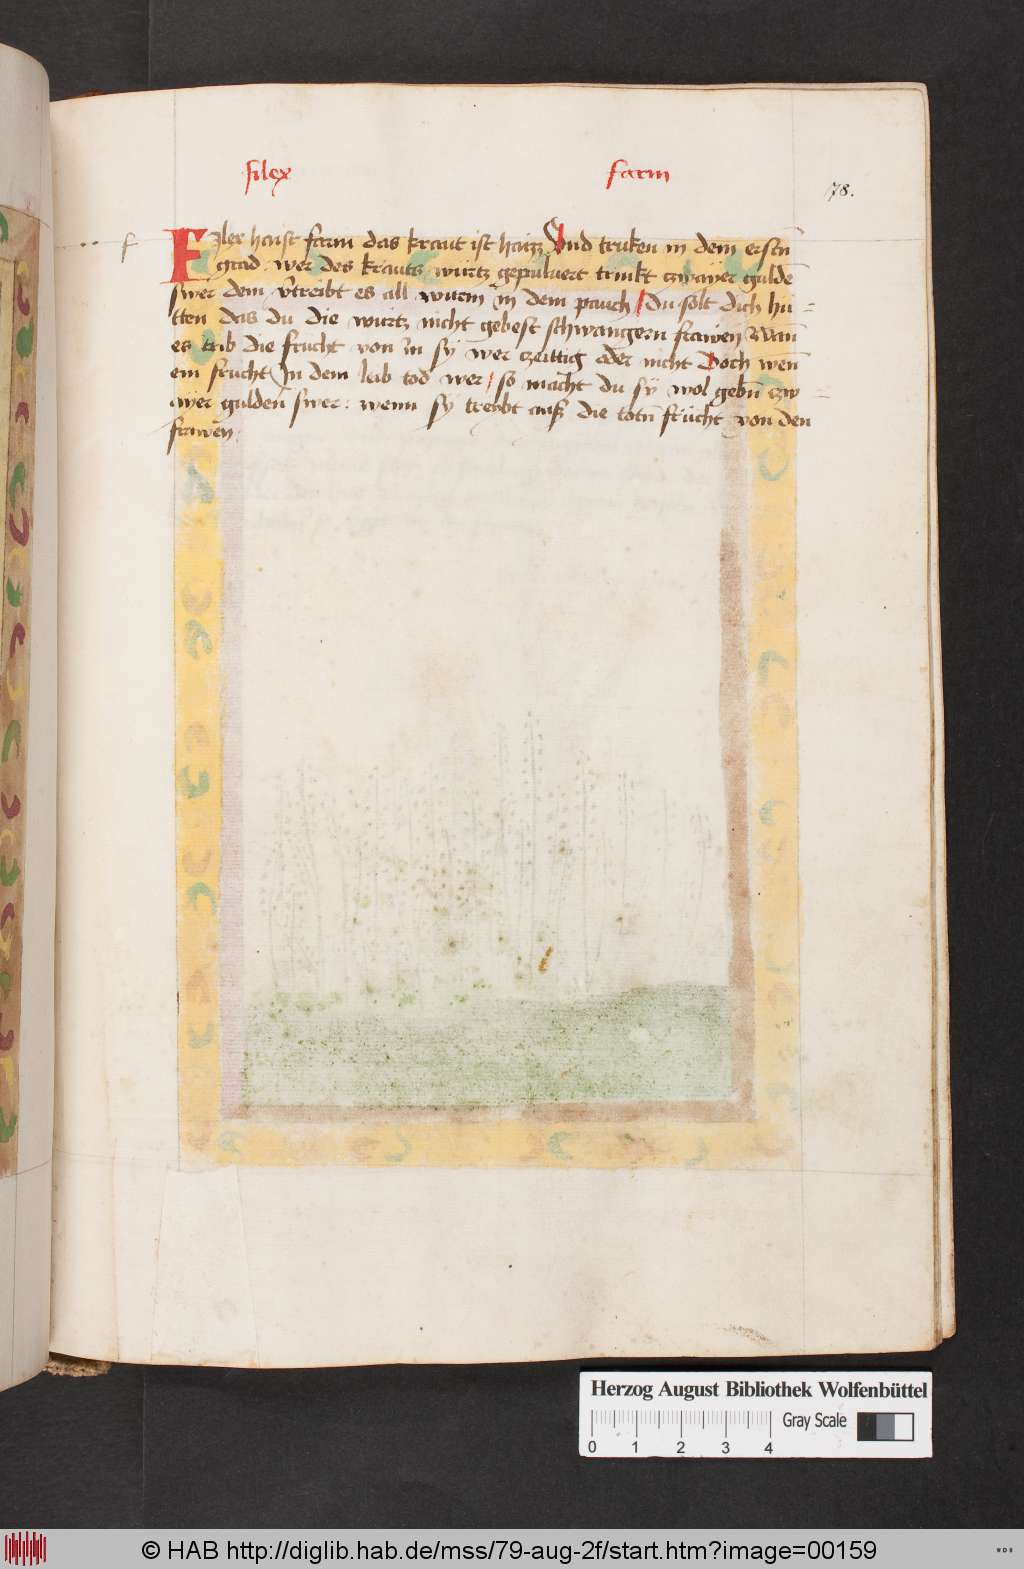 filex farm
78.
f
Filex haist farm das kraut ist haizz Vnd truken in dem erstn̄
grad wer des krauts würtz gepuluert trinkt czwaier guldē
swer dem v̄treibt es all wurm in dem pauch / Du solt dich hu-
tten das du die wurtz nicht gebest schwangern frawen Wan̄
es trib die frucht von in sÿ wer czeittig oder nicht Doch wen̄
ein frucht in dem leib tod wer / so macht du sÿ wol gebn̄ czw-
ayer gulden swer : wenn sÿ treybt auß die totn̄ frücht von den
frawen
Herzog August Bibliothek Wolfenbüttel
Gray Scale
0 1 2 3 4
© HAB http://diglib.hab.de/mss/79-aug-2f/start.htm?image=00159